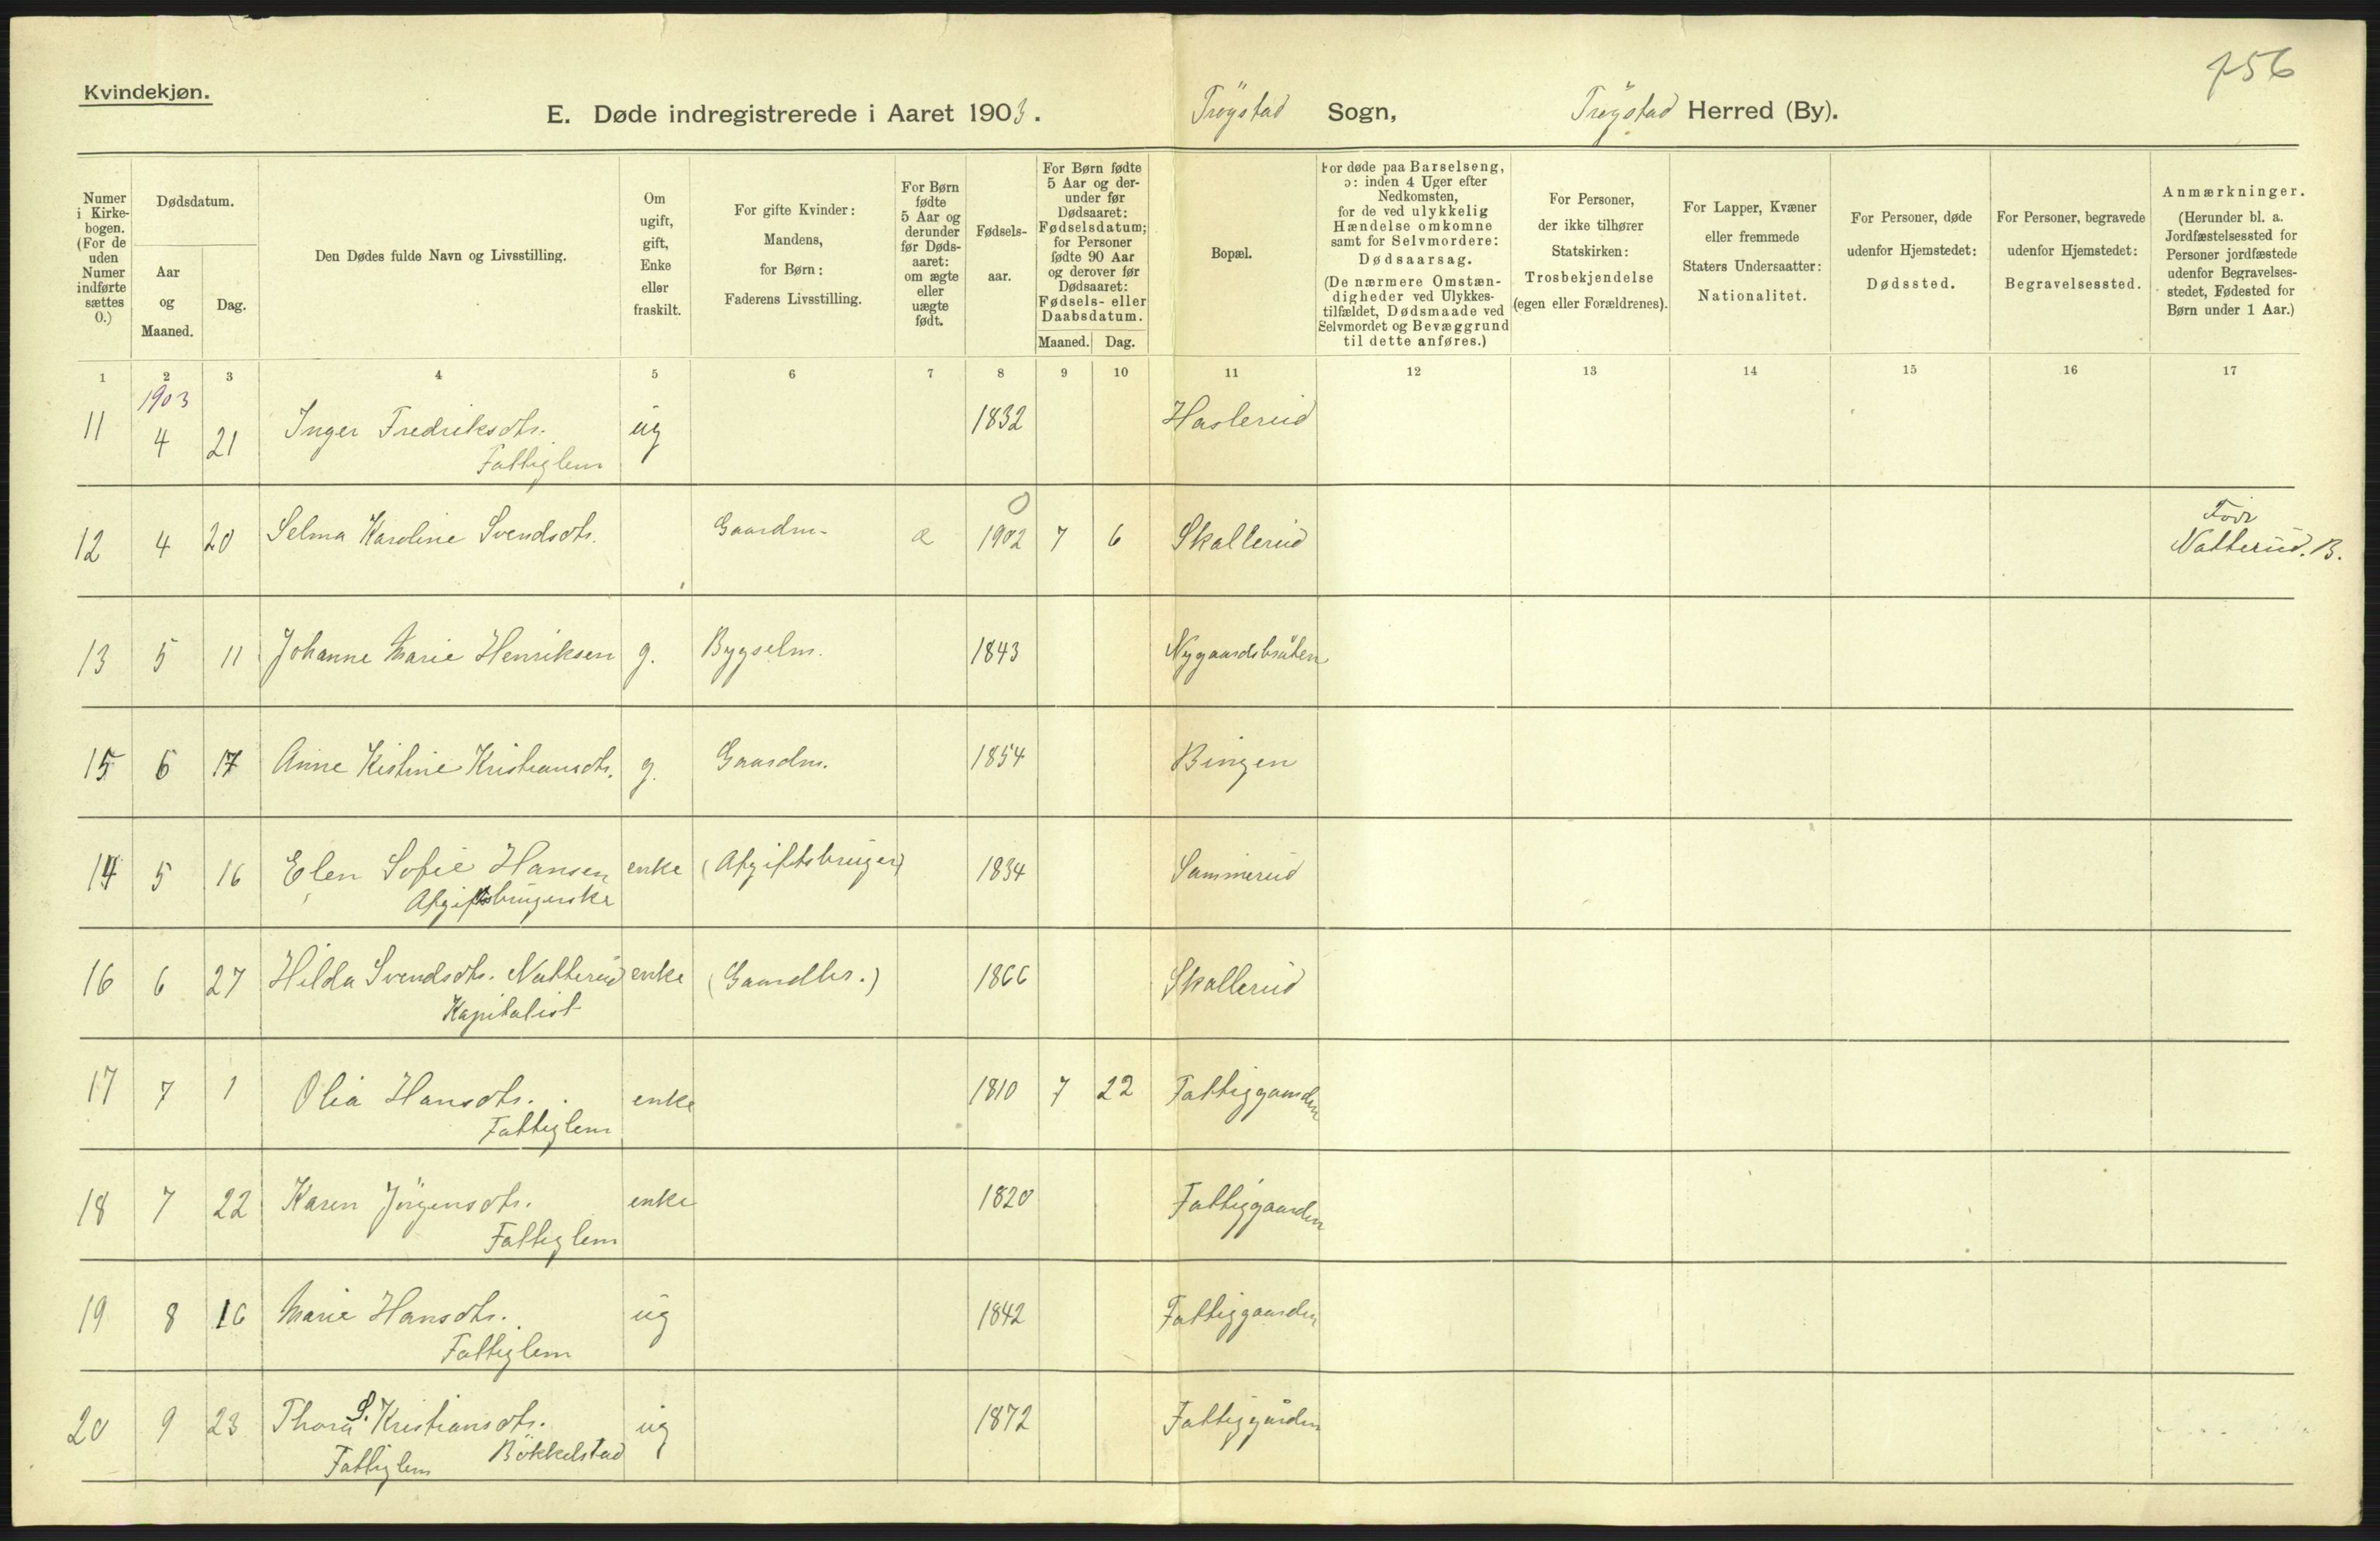 756
Kvindekjøn.
E. Døde indregistrerede i Aaret 1903. Trøgstad Sogn, Trøgstad Herred (By).
Numer i Kirkebogen. (For de uden Numer indførte sættes 0.)
Dødsdatum.
Aar og Maaned.
Dag.
Den Dødes fulde Navn og Livsstilling.
Om ugift, gift, Enke eller fraskilt.
For gifte Kvinder: Mandens, for Børn: Faderens Livsstilling.
For Børn fødte 5 Aar og derunder før Dødsaaret: om ægte eller uægte født.
Fødselsaar.
For Børn fødte 5 Aar og derunder før Dødsaaret: Fødselsdatum; for Personer fødte 90 Aar og derover før Dødsaaret: Fødsels- eller Daabsdatum.
Maaned. Dag.
Bopæl.
For døde paa Barselseng, ɔ: inden 4 Uger efter Nedkomsten, for de ved ulykkelig Hændelse omkomne samt for Selvmordere: Dødsaarsag. (De nærmere Omstændigheder ved Ulykkestilfældet, Dødsmaade ved Selvmordet og Bevæggrund til dette anføres.)
For Personer, der ikke tilhører Statskirken: Trosbekjendelse (egen eller Forældrenes).
For Lapper, Kvæner eller fremmede Staters Undersaatter: Nationalitet.
For Personer, døde udenfor Hjemstedet: Dødssted.
For Personer, begravede udenfor Hjemstedet: Begravelsessted.
Anmærkninger. (Herunder bl. a. Jordfæstelsessted for Personer jordfæstede udenfor Begravelsesstedet, Fødested for Børn under 1 Aar.)
1 2 3 4 5 6 7 8 9 10 11 12 13 14 15 16 17
1903
11 4 21 Inger Fredriksdtr. ug 1832 Haslerud
Fattiglem
0
12 4 20 Selma Karoline Svendsdtr. Gaardm. 1902 7 6 Skallerud Født
Natterud. B.
13 5 11 Johanne Marie Henriksen g. Bygselm. 1843 Nygaardsbråten
15 6 17 Anne Kistine Kristiansdtr. g. Gaardm. 1854 Bingen
14 5 16 Elen Sofie Hansen enke (Afgiftsbruger) 1834 Sammerud
Afgiftsbrugerske
16 6 27 Hilda Svendsdtr. Natterud enke (Gaardbr.) 1866 Skallerud
Kapitalist
17 7 1 Olia Hansdtr. enke 1810 7 22 Fattiggaarden
Fattiglem
18 7 22 Karen Jörgensdtr. enke 1820 Fattiggaarden
Fattiglem
19 8 16 Marie Hansdtr. ug 1842 Fattiggaarden
Fattiglem
20 9 23 Thora S. Kristiansdtr. ug 1872 Fattiggården
Fattiglem Bökkelstad